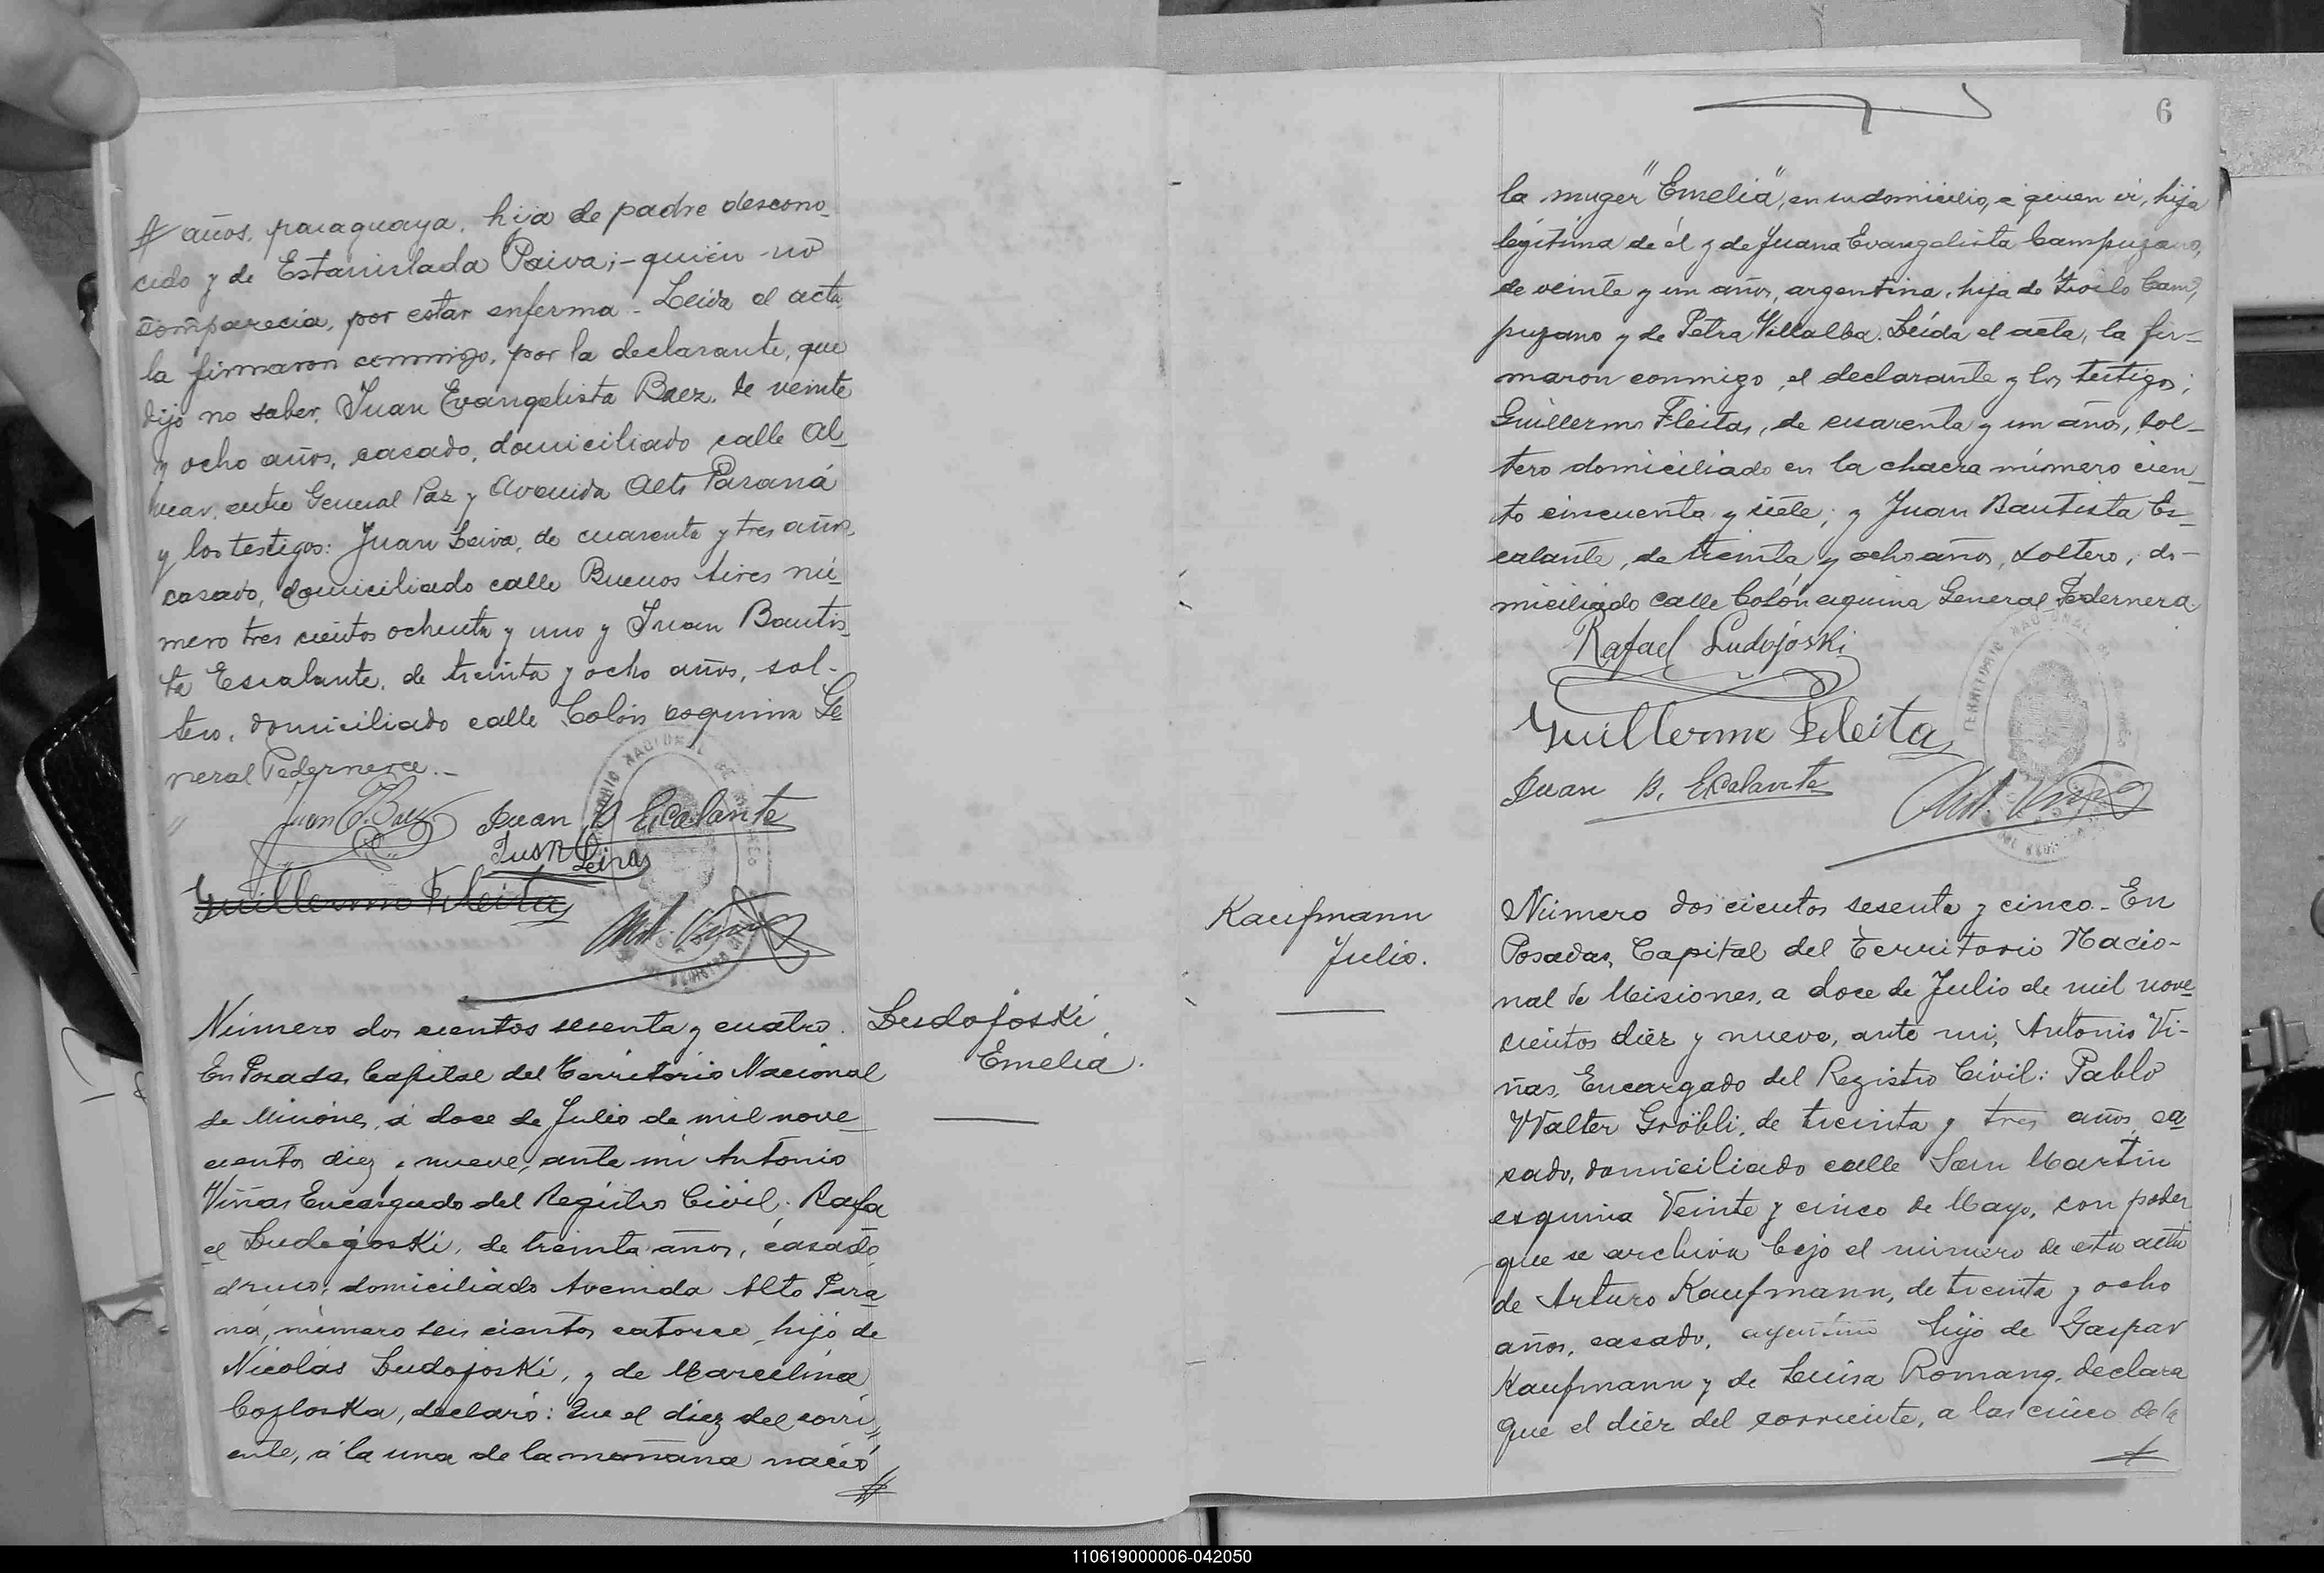 años, paraguaya, hija de padre descono-
cido y de Estanislada Paiva; - quién no
comparecía, por estar enferma - Leida el acta
la firmaron conmigo, por la declarante, que
dijo no saber, Juan Evangelista Baez, de veinte
y ocho años, casado, domiciliado calle Al-
vear, entre General Paz y Avenida Alto Paraná
y los testigos: Juan Leiva, de cuarenta y tres años,
casado, domiciliado calle Buenos Aires nú-
mero tres cientos ochenta y uno y Juan Bautis-
ta Escalante, de treinta y ocho años, sol-
tero, domiciliado calle Colón esquina Ge-
neral Pedernera.-
Juan E. Baez
Juan B Escalante
Juan Leiva
Guillermo Fleita
Ant. Viñas
Número dos cientos sesenta y cuatro.
En Posadas, Capital del Territorio Nacional
de Misiones, á doce de Julio de mil nove-
cientos diez y nueve, ante mi Antonio
Viñas Encargado del Registro Civil; Rafa
el Ludojoski, de treinta años, casado,
ruso, domiciliado Avenida Alto Para-
ná, número seis cientos catorce, hijo de
Nicolás Ludojoski, y de Marcelina
Cozloska, declaró: Que el diez del corri-
ente, á la una de la mañana nació
Ludojoski,
Emelia.
6
la muger "Emelia", en su domicilio, a quien vi, hija
legítima de él y de Juana Evangelista Campuzano,
de veinte y un años, argentina, hija de Zoilo Cam-
puzano y de Petra Villalba. Leída el acta, la fir-
maron conmigo, el declarante y los testigos;
Guillermo Fleitas, de cuarenta y un años, sol-
tero domiciliado en la chacra número cien-
to cincuenta y siete; y Juan Bautista Es-
calante, de treinta y ocho años, soltero, do-
miciliado calle Colón esquina General Pedernera.
Rafael Ludojoski
Guillermo Fleita
Juan B. Escalante
Ant. Viñas
Kaufmann
Julio.
Número dos cientos sesenta y cinco - En
Posadas, Capital del Territorio Nacio-
nal de Misiones, a doce de Julio de mil nove-
cientos diez y nueve, ante mi, Antonio Vi-
ñas, Encargado del Registro Civil: Pablo
Walter Gröbli, de treinta y tres años, ca-
sado, domiciliado calle San Martín
esquina Veinte y cinco de Mayo, con poder
que se archiva bajo el número de esta acta
de Arturo Kaufmann, de treinta y ocho
años, casado, argentino hijo de Gaspar
Kaufmann y de Luisa Romang, declara
Que el diez del corriente, a las cinco de la
110619000006-042050